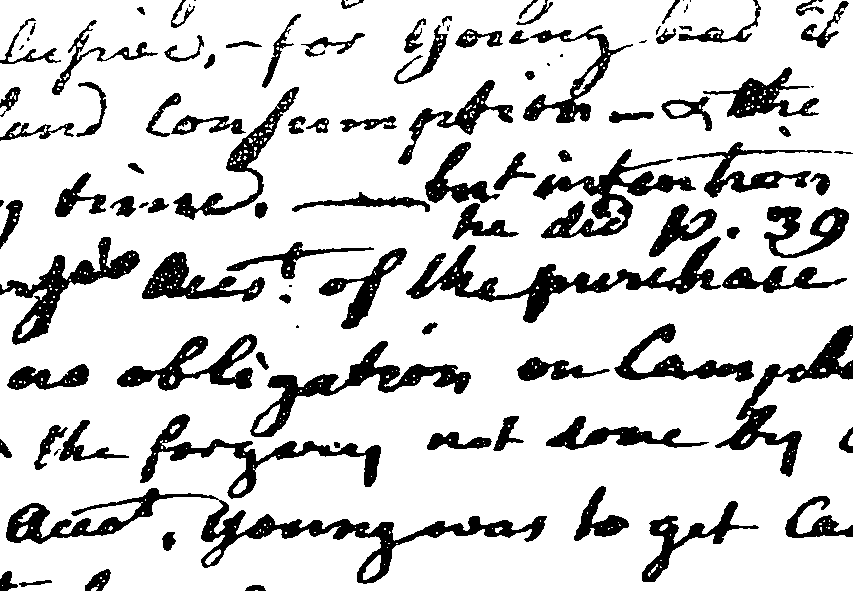 for Young had it
land consumption — & the
time. — but intention
he did p. 39
Acct. of the purchase
no obligation on Campbe
the forgery not done by
Acct. Young was to get Ca